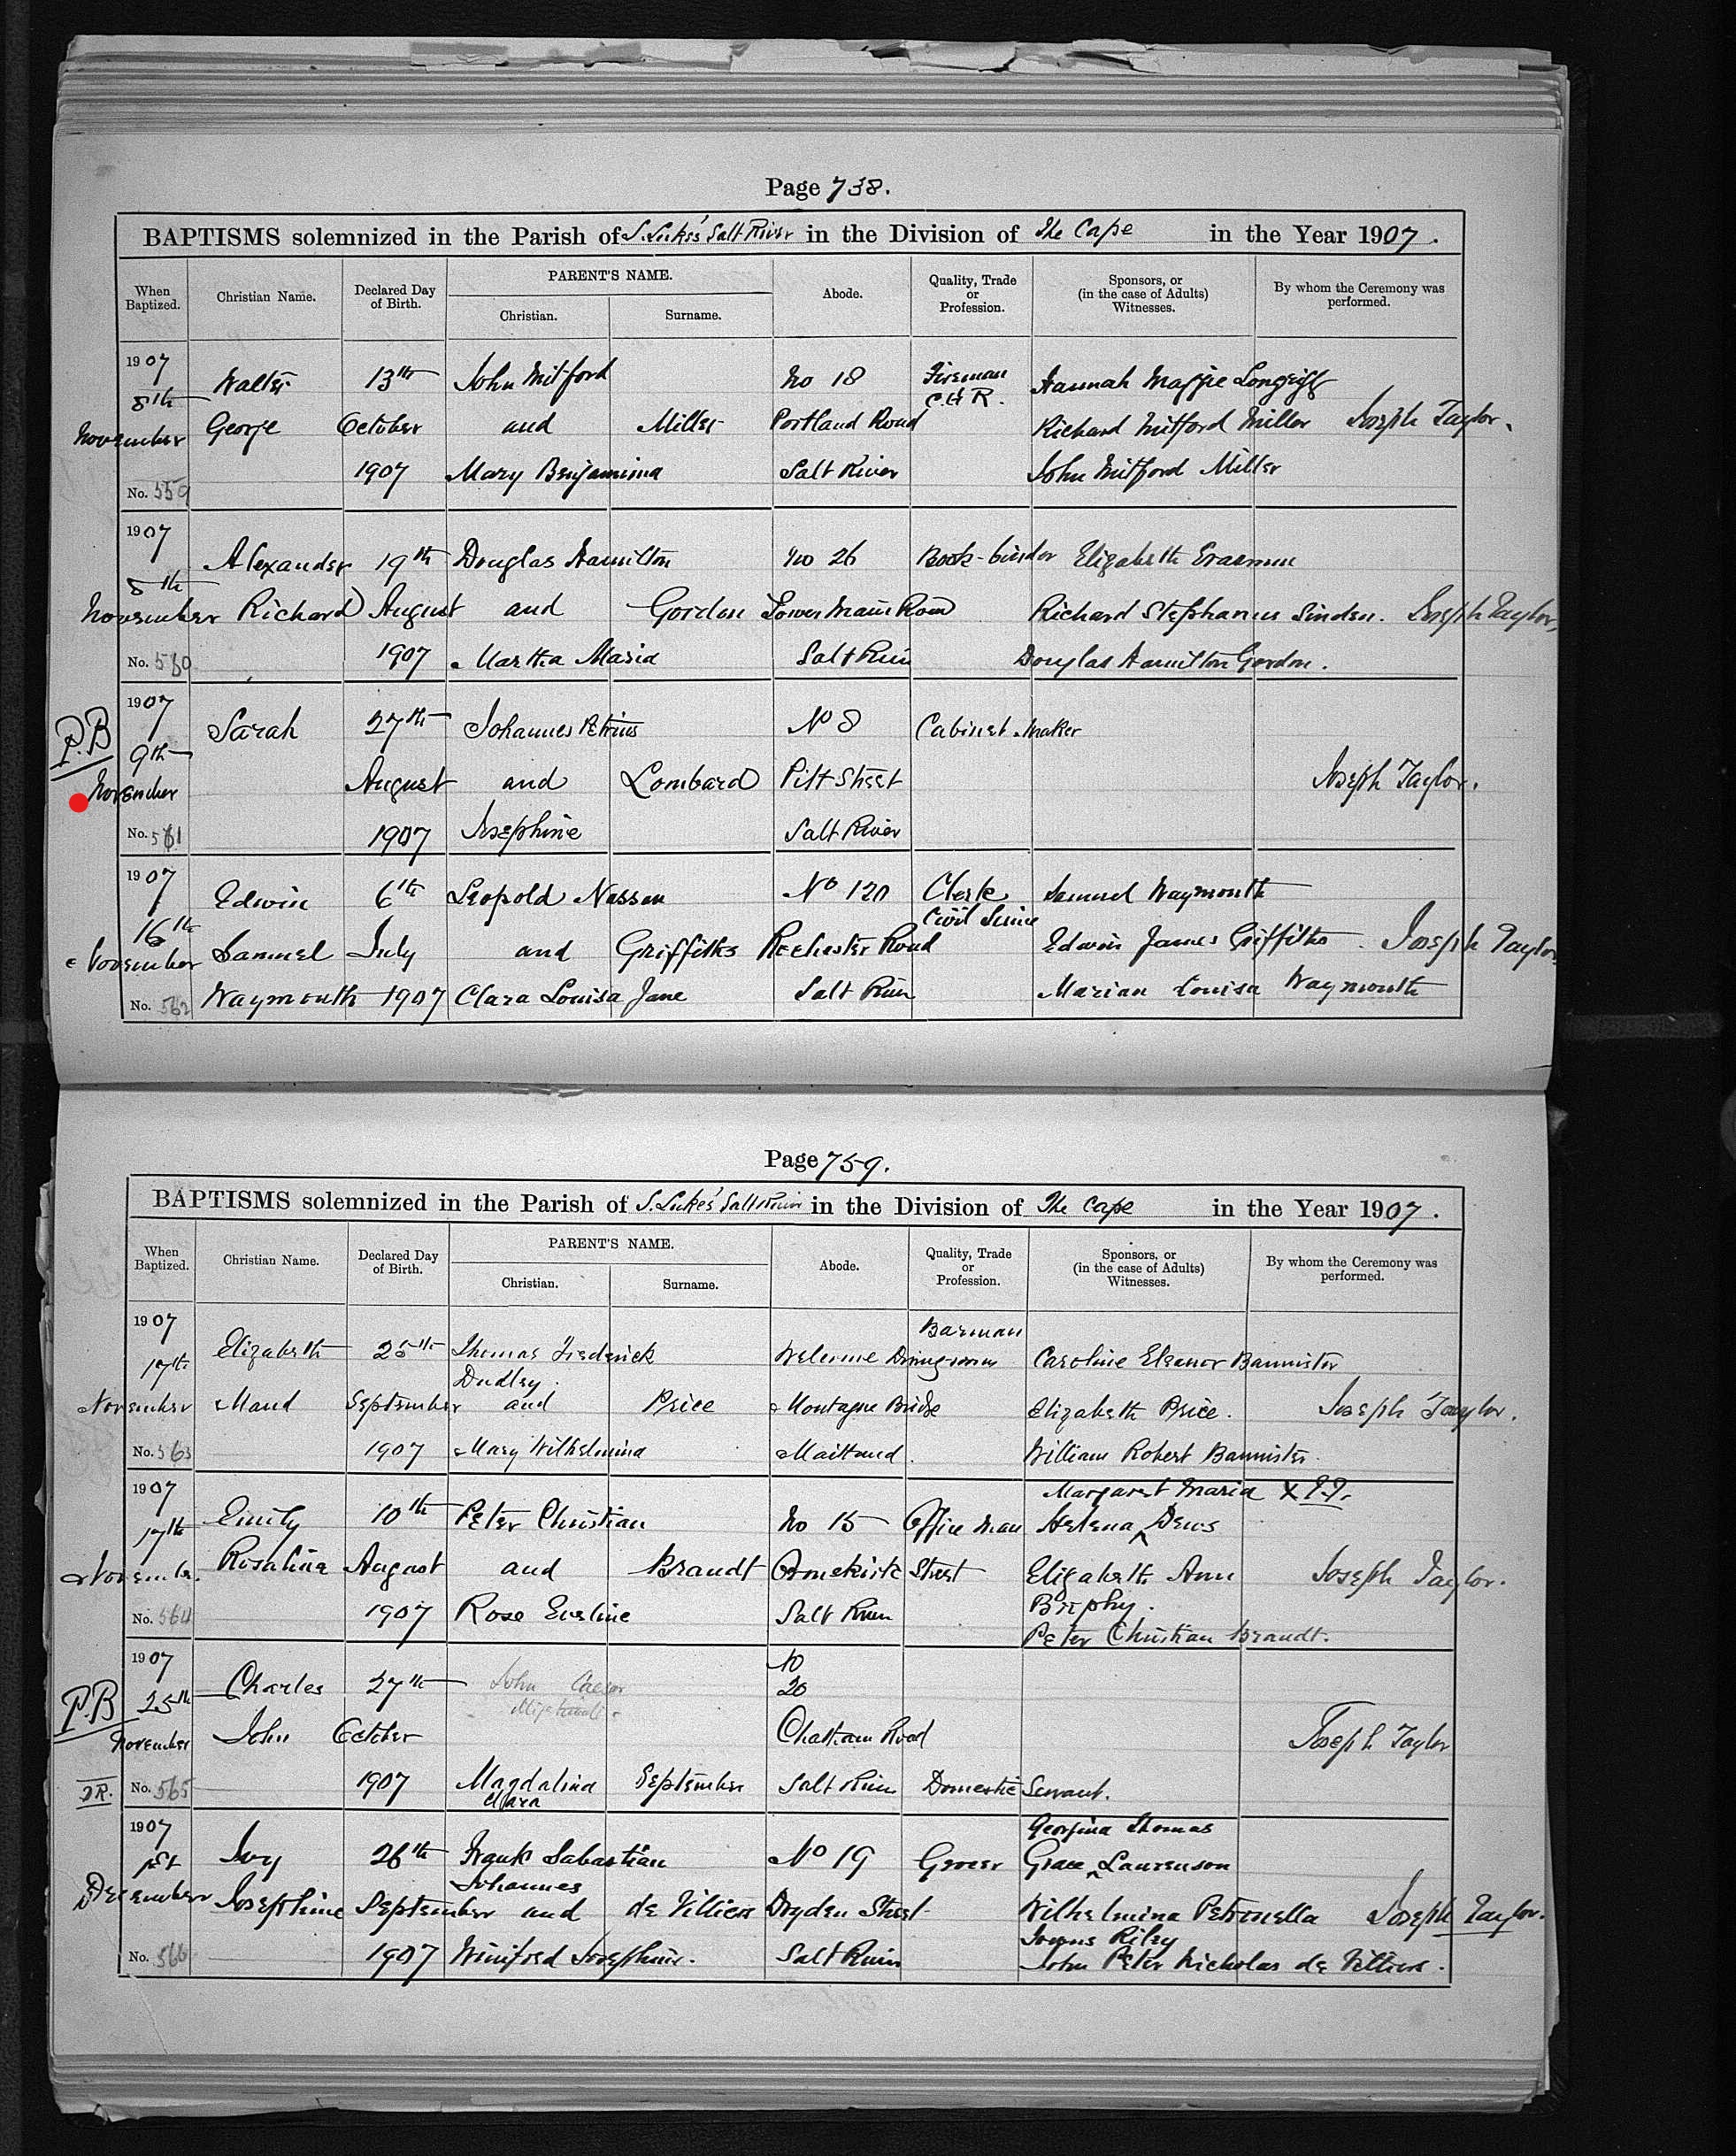 Page 738.
BAPTISMS solemnized in the Parish of S. Lukes' Salt River in the Division of The Cape in the Year 1907.
When Baptized. Christian Name. Declared Day of Birth. PARENT'S NAME. Christian. Surname. Abode. Quality, Trade or Profession. Sponsors, or (in the case of Adults) Witnesses. By whom the Ceremony was performed.
1907 Walter 13th John Mitford No 18 Fireman Hannah Maggie
8th C.G.R.
November George October and Miller Portland Road Richard Mitford Miller Joseph Taylor.
1907 Mary Benjamina Salt River John Mitford Miller
No. 559
1907 Alexander 19th Douglas Hamilton No 26 Book-binder Elizabeth Erasmus
8th
November Richard August and Gordon Lower Main Road Richard Stephanus Sinden. Joseph Taylor,
No. 560 1907 Martha Maria Salt River Douglas Hamilton Gordon.
1907 Sarah 27th Johannes Petrus No 8 Cabinet maker
P.B 9th
November August and Lombard Pitt Street Joseph Taylor.
No. 561 1907 Josephine Salt River
1907 Edwin 6th Leopold Nassau No 120 Clerk Samuel Waymouth
16th Civil Service
November Samuel July and Griffiths Rochester Road Edwin James Griffiths. Joseph Taylor.
No. 562 Waymouth 1907 Clara Louisa Jane Salt River Marian Louisa Waymouth
Page 759.
BAPTISMS solemnized in the Parish of S. Lukes' Salt River in the Division of The Cape in the Year 1907.
When Baptized. Christian Name. Declared Day of Birth. PARENT'S NAME. Christian. Surname. Abode. Quality, Trade or Profession. Sponsors, or (in the case of Adults) Witnesses. By whom the Ceremony was performed.
1907 Barman
17th Elizabeth 25th Thomas Frederick Caroline Eleanor Bannister
Dudley
November Maud September and Price Montague Bridge Elizabeth Price. Joseph Taylor.
No. 563 1907 Mary Wilhelmina Maitland. William Robert Bannister.
1907 Margaret Maria X
17th Emily 10th Peter Christian No 15 Office Man Helena ^ Dews
November Rosaline August and Brandt Street Elizabeth Ann Joseph Taylor.
No. 564 1907 Rose Eveline Salt River Brephy.
Peter Christian Brandt.
1907 No
P.B 25th Charles 27th John Caesar 20
November John October Chatham Road Joseph Taylor
No. 565 1907 Magdalina September Salt River Domestic Servant.
Clara
1907 Georgina Thomas
1st Ivy 26th Frank Sabastian No 19 Grocer Grace ^ Laurenson
Johannes
December Josephine September and de Villiers Dryden Street Wilhelmina Petronella Joseph Taylor.
Riley
No. 566 1907 Winifred Josephine. Salt River John Peter Nicholas de Villiers.